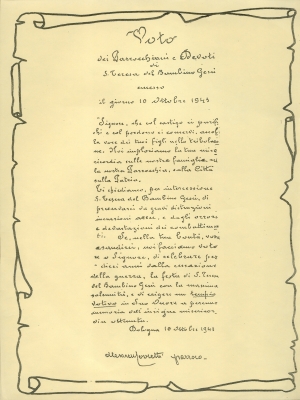 Voto
dei Parrocchiani e Devoti
di
S. Teresa del Bambino Gesù
emesso
il giorno 10 Ottobre 1943
"Signore, che col castigo ci purifi-
chi e col perdono ci conservi, ascol-
ta la voce dei tuoi figli nella tribola-
zione. Noi imploriamo la tua mise-
ricordia sulle nostre famiglie, su
la nostra Parrocchia, sulla Città
sulla Patria.
Ti chiediamo, per intercessione
S. Teresa del Bambino Gesù, di
preservarci da gravi distruzioni
incursioni aeree, e dagli orrori
e devastazioni dei combattimen-
ti. Se, nella tua bontà, vorrai
esaudirci, noi facciamo voto
o Signore, di celebrare per
dieci anni dalla cessazione
della guerra, la festa di S. Teresa
del Bambino Gesù con la massima
solennità, e di erigere un tempio
votivo in Suo Onore a perenne
memoria
ottenuta.
Bologna 10 Ottobre 1943